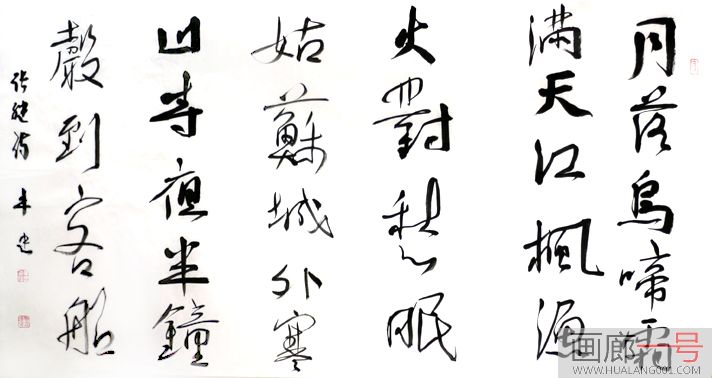 月落烏啼霜
满天江楓漁
火對愁眠
姑蘇城外寒
山寺夜半鐘
聲到客船
张继诗
画廊一号
WWW.HUALANG001.COM